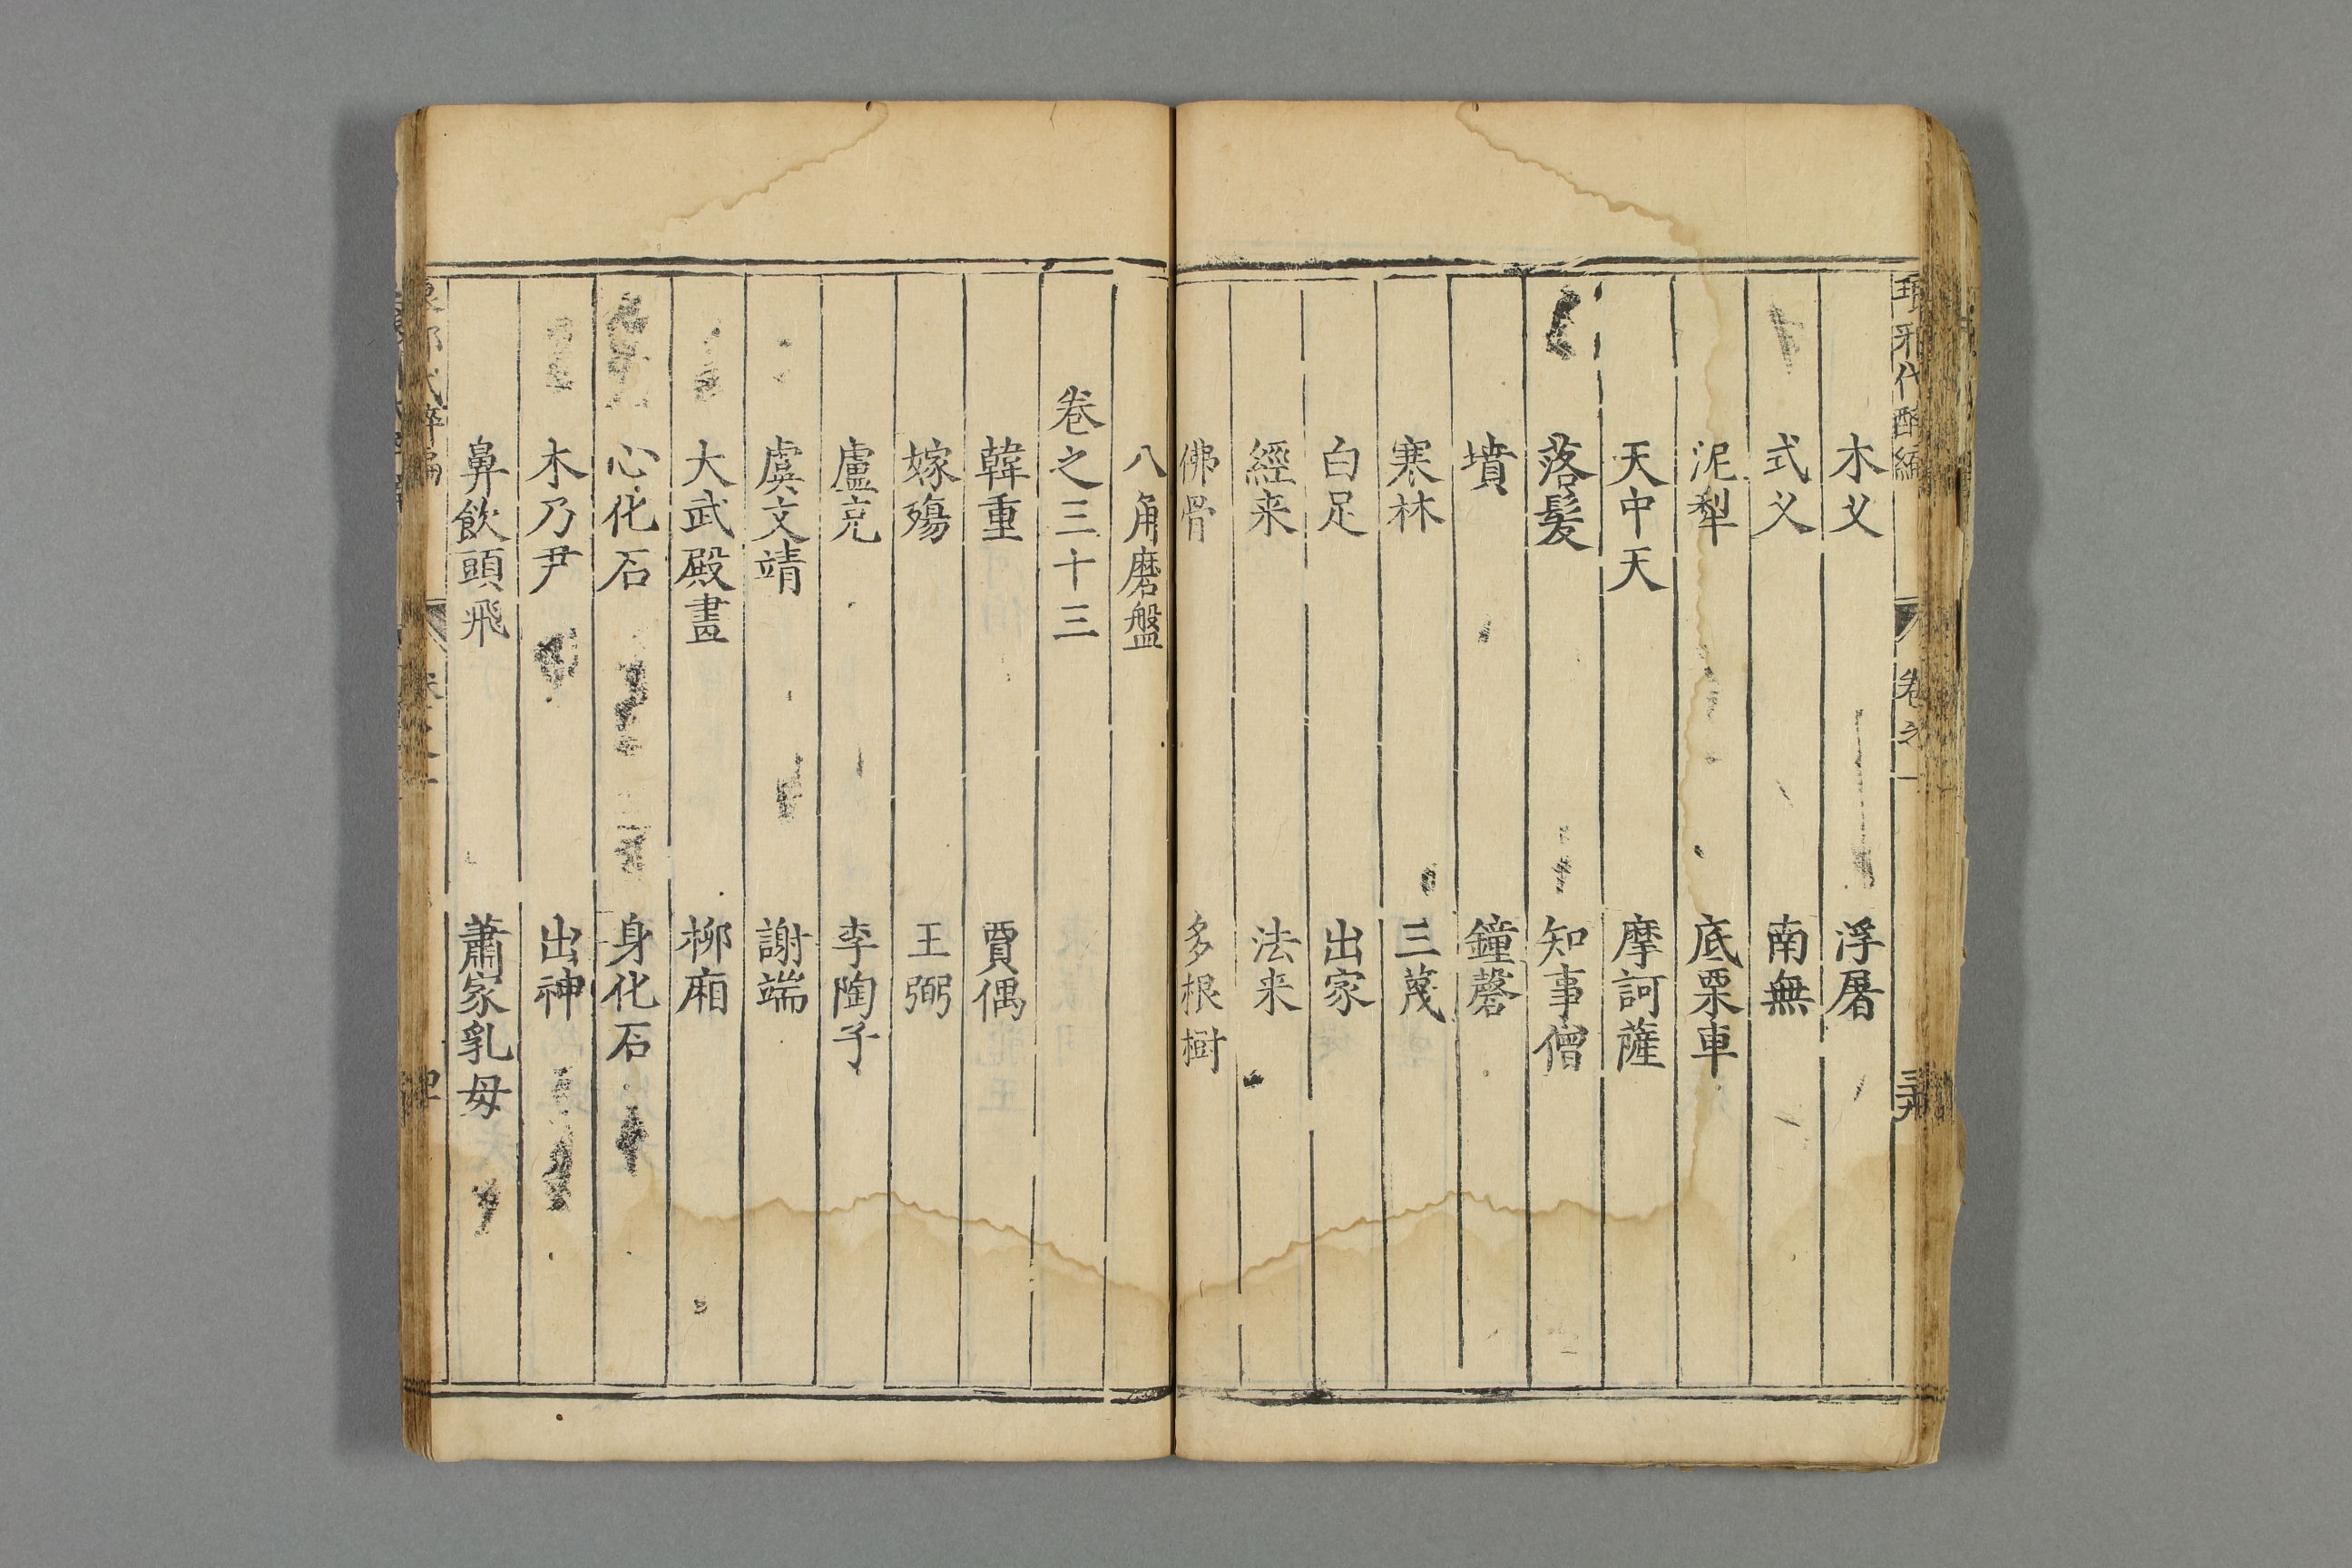 木义 浮屠
式义 南無
泥犁 底栗車
天中天 摩訶薩
落髮 知事僧
墳 鐘磬
寒林 三蔑
白足 出家
經来 法来
佛骨 多根樹
八角磨盤
卷之三十三
韓重 賈偶
嫁殤 王弼
盧充 李陶子
虞文靖 謝端
大武殿畫 柳廂
心化石 身化石
木乃尹 出神
鼻飲頭飛 蕭家乳母